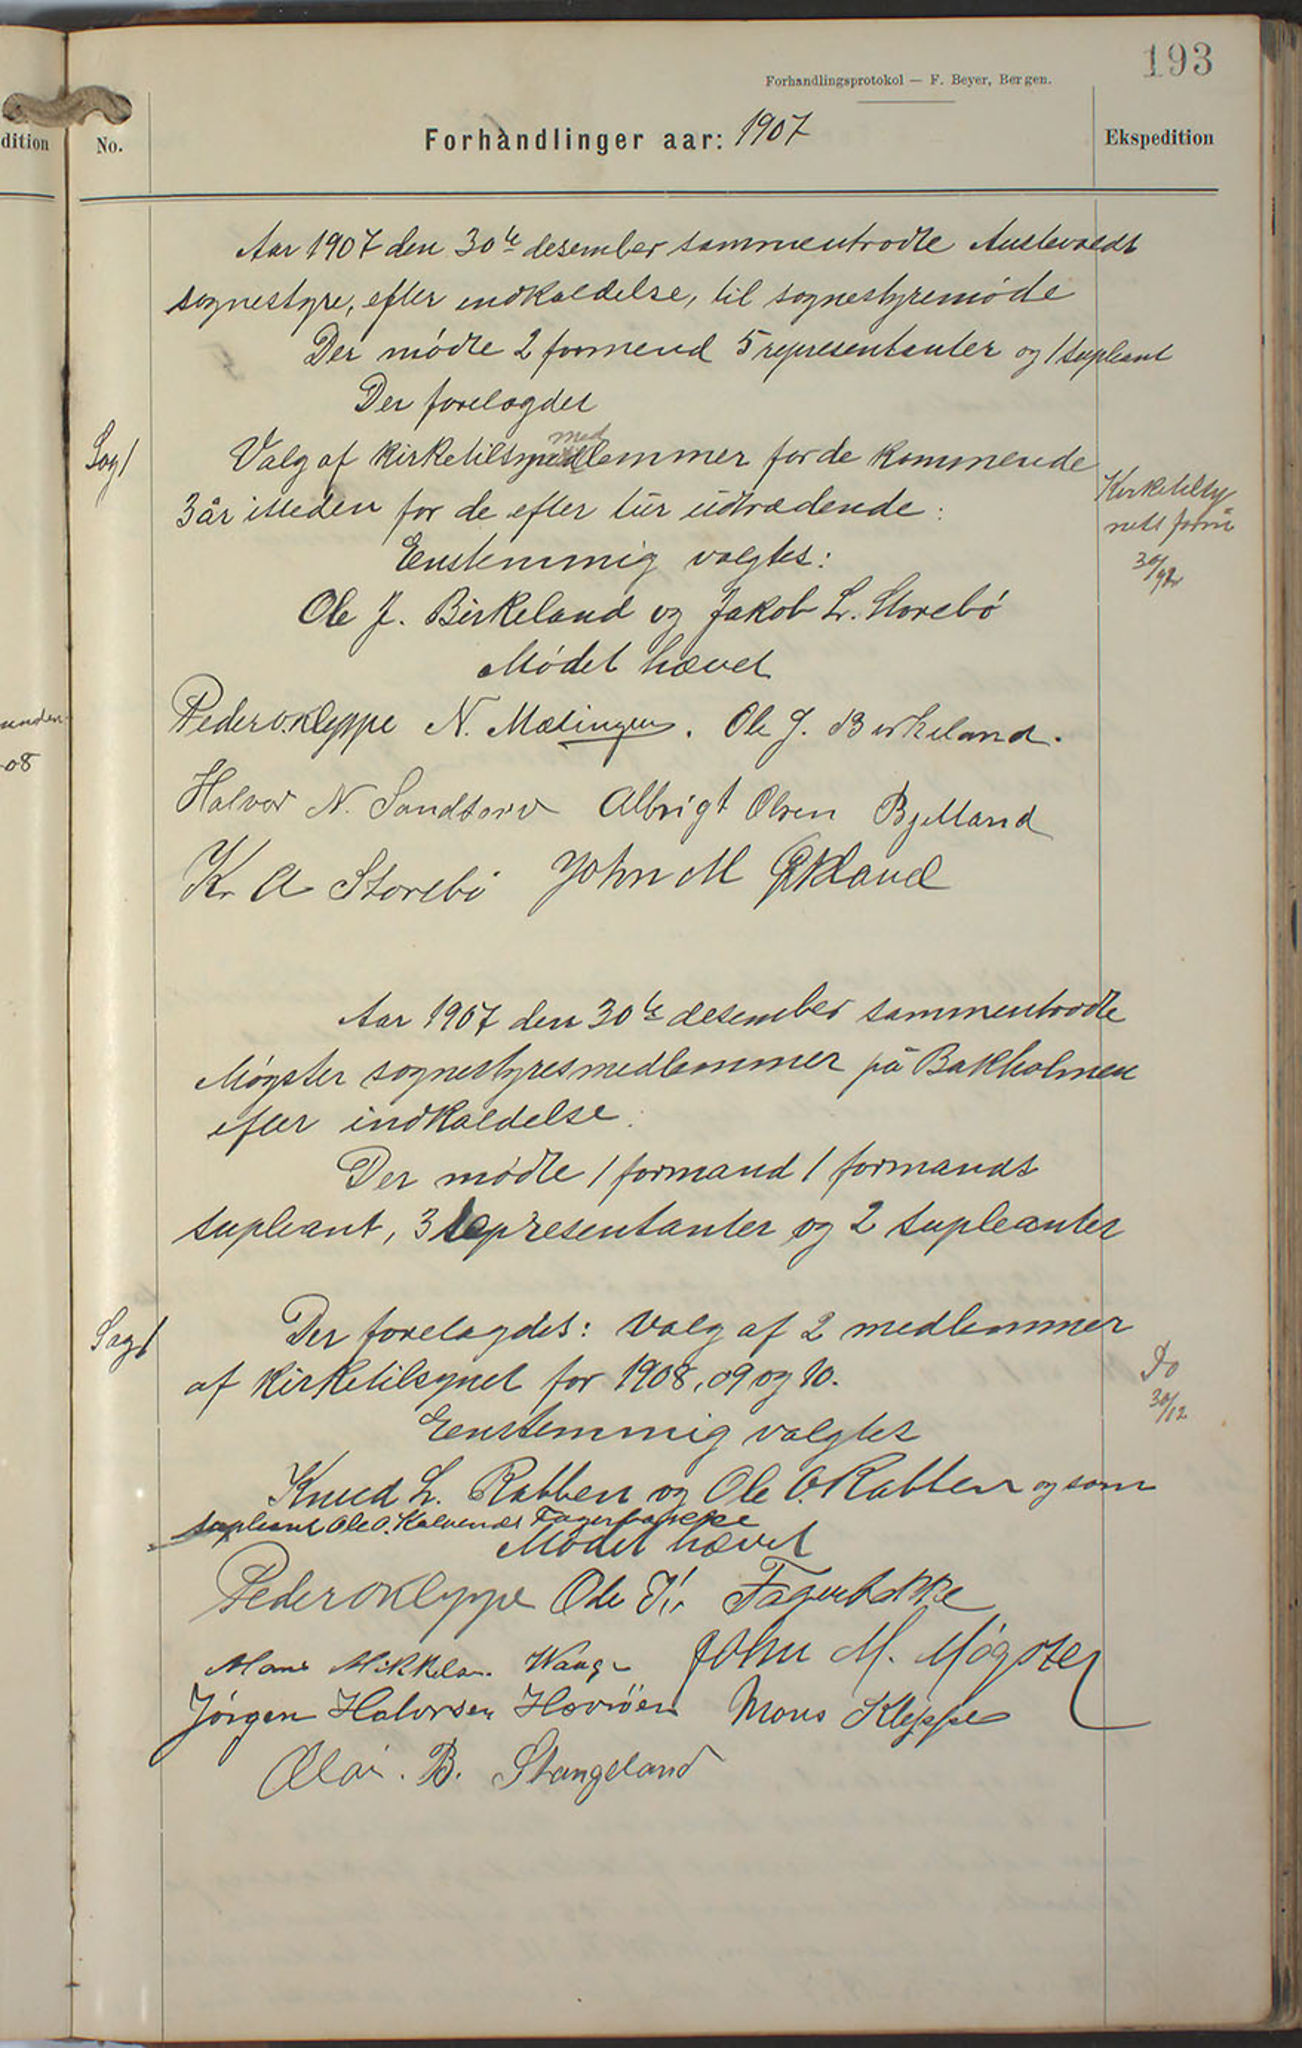 193
Forhandlingsprotokol — F. Beyer, Bergen.
dition
No.
Forhandlinger aar: 1907
Ekspedition
Aar 1907 den 30te desember sammentrådte Austevolds
sognestyre, efter indkaldelse, til sognestyremøde
Der mødte 2 formend 5 representanter og 1 supleant
Der forelagdes
Sag 1
Valg af kirketilsynmedlemmer for de kommende
3 år isteden for de efter tur udtrædende:
Kirketilsy
nets form
30/12
Eenstemmig valgtes:
Ole J. Birkeland og Jakob L. Storebø
Mødet hævet
Peder O. Kleppe N. Mælingen. Ole J. Birkeland.
Halvor N. Sandtorv Albrigt Olsen Bjelland
K. A Storebø John M Økland
unden
08
Aar 1907 den 30te desember sammentrådte
Møgster sognestyresmedlemmer på Bakholmen
efter indkaldelse.
Der mødte 1 formand 1 formands
supleant, 3 representanter og 2 supleanter
Sag 1
Der forelagdes: Valg af 2 medlemmer
af kirketilsynet for 1908, 09 og 10.
Do
30/12
Eenstemmig valgtes
Knud L. Rabben og Ole O. Rabben og som
supleant Ole O. Kalvenes Fagerbakke
Mødet hævet
Peder O Kleppe Ole Fagerbakke
Mons Mikkelsen Waage John M. Møgster
Jørgen Halvorsen Horvøen Mons Kleppe
Olai. B. Stangeland